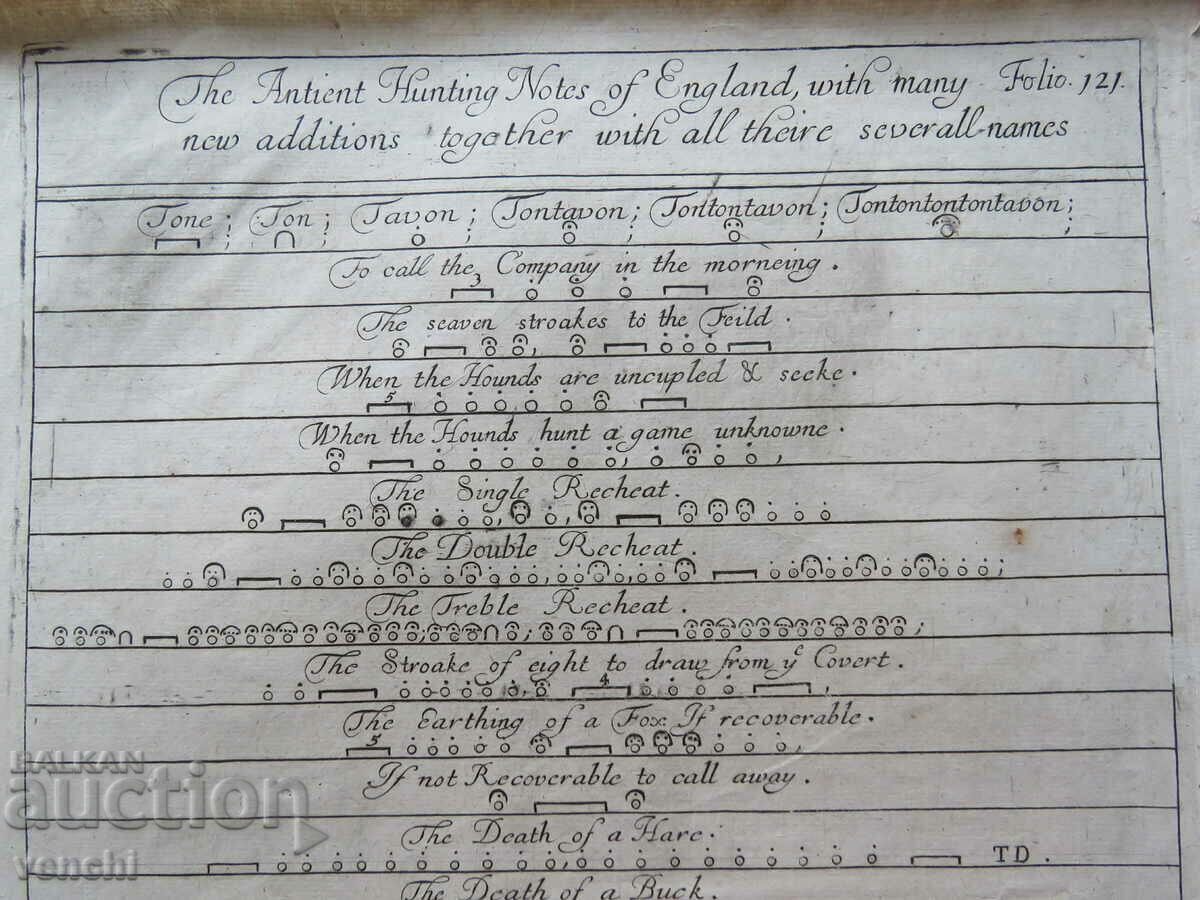 The Antient Hunting Notes of England, with many Folio. 121.
new additions together with all theire severall-names
Tone; Ton; Tavon; Tontavon; Tontontavon; Tontontontontavon;
To call the Company in the morneing.
3
The seaven stroakes to the Feild.
When the Hounds are uncupled & seeke.
5
When the Hounds hunt a game unknowne.
The Single Recheat.
The Double Recheat.
The Treble Recheat.
The Stroake of eight to draw from yᵉ Covert.
4
The Earthing of a Fox If recoverable.
5
If not Recoverable to call away.
The Death of a Hare.
TD.
The Death of a Buck.
BALKAN
auction
venchi